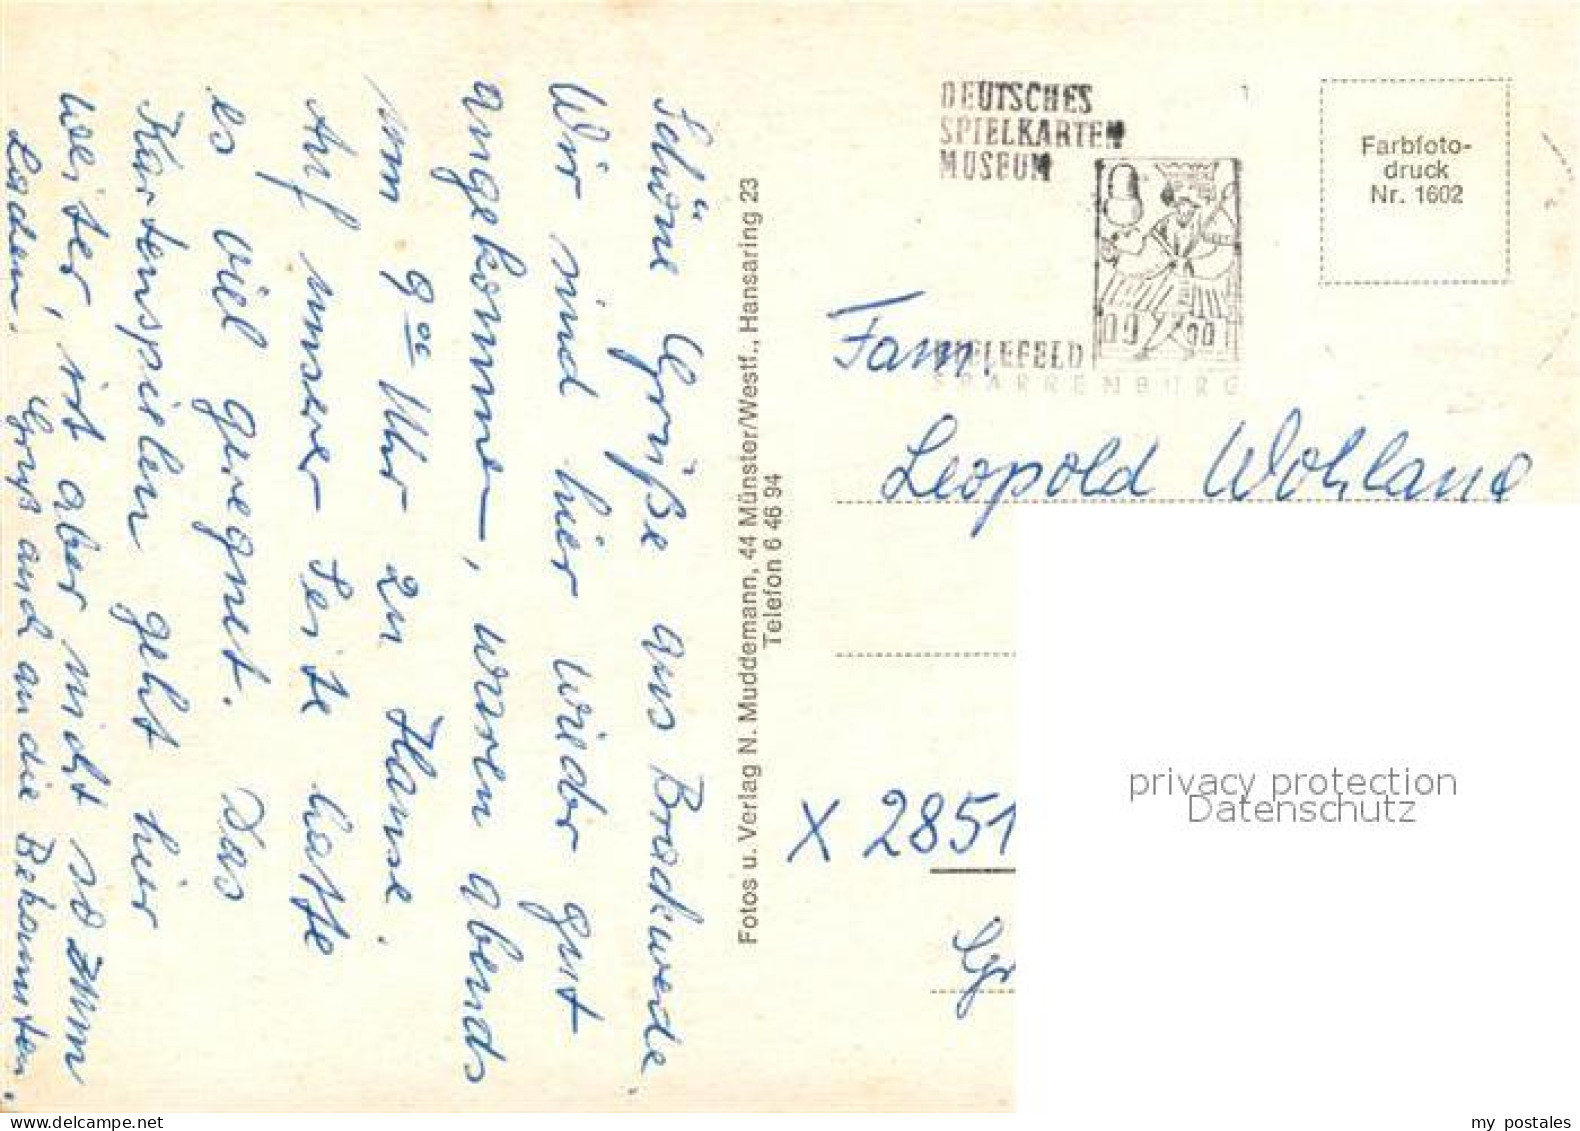 Schöne Grüße aus Brackwede.
Wir sind hier wieder gut
angekommen, waren abends
um 9 oo Uhr zu Hause.
Auf unserer Seite hatte
es viel geregnet. Das
Kartenspielen geht hier
weiter, ist aber nicht so zum
Lachen. Gruß auch an die Bekannten.
Fotos u. Verlag N. Muddemann, 44 Münster/Westf., Hansaring 23
Telefon 6 46 94
DEUTSCHES
SPIELKARTEN
MUSEUM
BIELEFELD
SPARRENBURG
Farbfoto-
druck
Nr. 1602
Fam.
Leopold Wohland
X 2851
privacy protection
Datenschutz
my postales